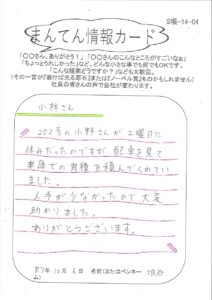 S帳-14-04
まんてん情報カード
「〇〇さん、ありがとう！」「〇〇さんのこんなところがすごいなぁ」
「ちょっとうれしかった」など、どんな小さな事でも何でもOKです。
「こんな提案どうですか？」なども大歓迎。
(その一言が『磨けば光る原石』または『ノーベル賞』ものかもしれません)
社員の皆さんの声で会社が変わります。
小林さん
202号の小野さんが土曜日に
休みだったのですが、配車を見て
車庫での荷積を積んでくれてい
ました。
人手が少なかったので大変
助かりました。
ありがとうございます。
R7年 10月 6日 名前(またはペンネーム)